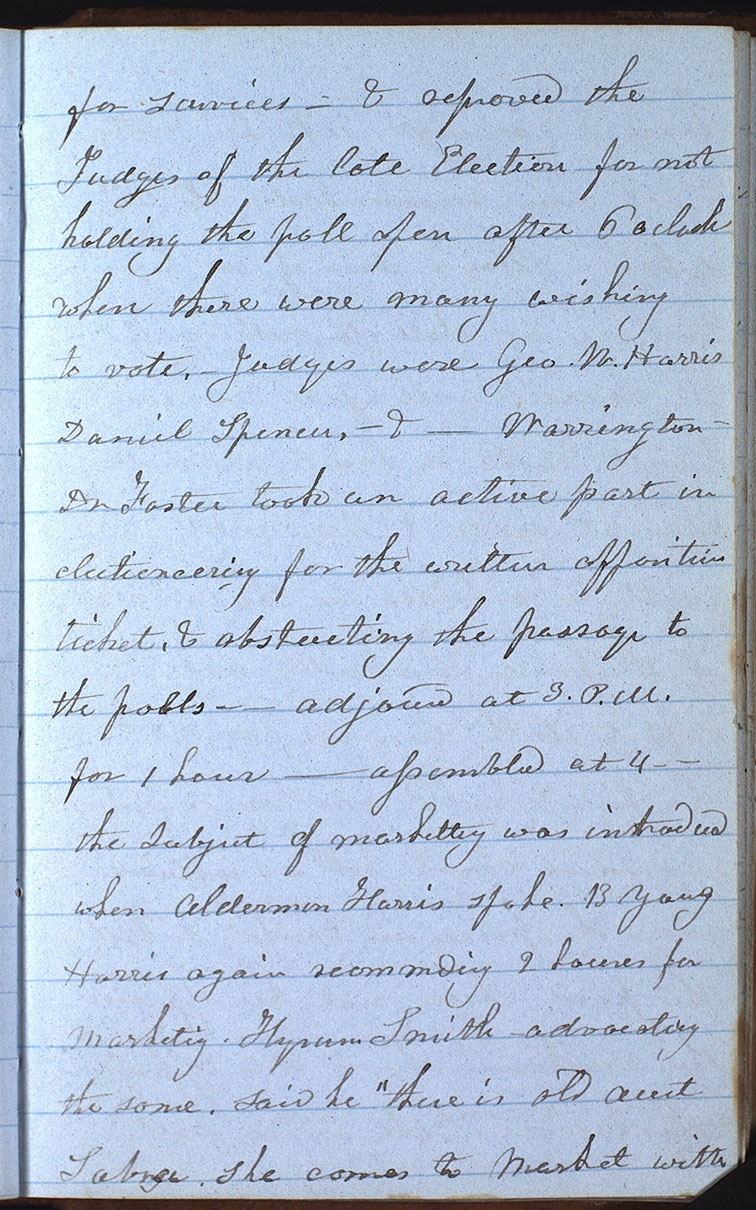 for services = & reproved the
Judges of the late Election for not
holding the poll open after 6 oclock
when there were many wishing
to vote. - Judges were Geo. W. Harris
Daniel Spencer, - & — Warrington -
Dr Foster took an active part in
elutioneering for the written opposition
ticket. & obstructing the passage to
the polls - — adjourd at 3. P.M.
for 1 hour — assembled at 4 - -
the subject of marketig was introduced
when Alderman Harris spoke. B Young
Harris again recommdig 2 houres for
Marketig. Hyrum Smith - advocatig
the same. said he "there is old aunt
Sabra. she comes to Market with